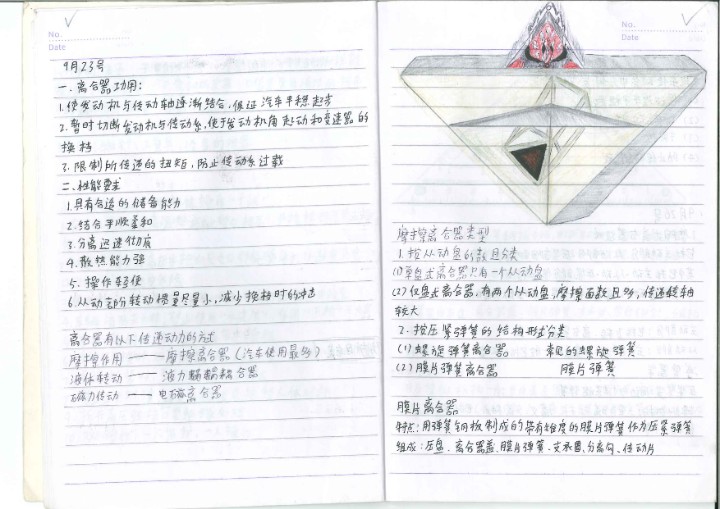 No.
Date
9月23号
一.离合器功用:
1.使发动机与传动轴逐渐结合,保证汽车平稳起步
2.暂时切断发动机与传动系,便于发动机启动和变速器的
换档
3.限制所传递的扭矩,防止传动系过载
二.性能要求
1.具有合适的储备能力
2.结合平顺柔和
3.分离迅速彻底
4.散热能力强
5.操作轻便
6.从动部份转动惯量尽量小,减少换档时的冲击
离合器有以下传递动力的方式
摩擦作用——摩擦离合器(汽车使用最多)
液体转动——液力耦合器
磁力传动——电磁离合器
No.
Date
摩擦离合器类型
1.按从动盘的数目分类
(1)单盘式离合器只有一个从动盘
(2)双盘式离合器,有两个从动盘,摩擦面数目多,传递转轴
较大
2.按压紧弹簧的结构形式分类
(1)螺旋弹簧离合器 常见的螺旋弹簧
(2)膜片弹簧离合器 膜片弹簧
膜片离合器
特点:用弹簧钢板制成的带有锥度的膜片弹簧作为压紧弹簧
组成:压盘、离合器盖、膜片弹簧、支承圈、分离勾、传动片